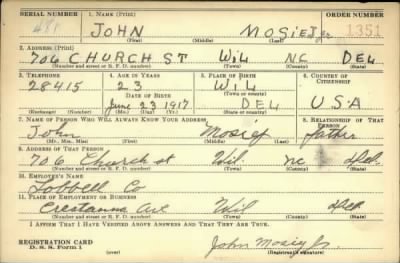 SERIAL NUMBER 1. NAME (Print) ORDER NUMBER
JOHN MOSIEJ Jr. 1351
(First) (Middle) (Last)
2. ADDRESS (Print)
706 CHURCH ST WIL NC DEL
(Number and street or R. F. D. number) (Town) (County) (State)
3. TELEPHONE 4. AGE IN YEARS 5. PLACE OF BIRTH 6. COUNTRY OF CITIZENSHIP
28415 23 WIL
DATE OF BIRTH
June 23 1917 DEL USA
(Exchange) (Number) (Mo.) (Day) (Yr.) (Town or county) (State or country)
7. NAME OF PERSON WHO WILL ALWAYS KNOW YOUR ADDRESS 8. RELATIONSHIP OF THAT PERSON
John Mosiej father
(Mr., Mrs., Miss) (First) (Middle) (Last)
9. ADDRESS OF THAT PERSON
706 Church st Wil. NC Del.
(Number and street or R. F. D. number) (Town) (County) (State)
10. EMPLOYER'S NAME
Lobdell Co
11. PLACE OF EMPLOYMENT OR BUSINESS
Ave Wil Del
(Number and street or R. F. D. number) (Town) (County) (State)
I AFFIRM THAT I HAVE VERIFIED ABOVE ANSWERS AND THAT THEY ARE TRUE.
REGISTRATION CARD
D. S. S. Form 1 (over) John Mosiej Jr.
(Registrant's signature)